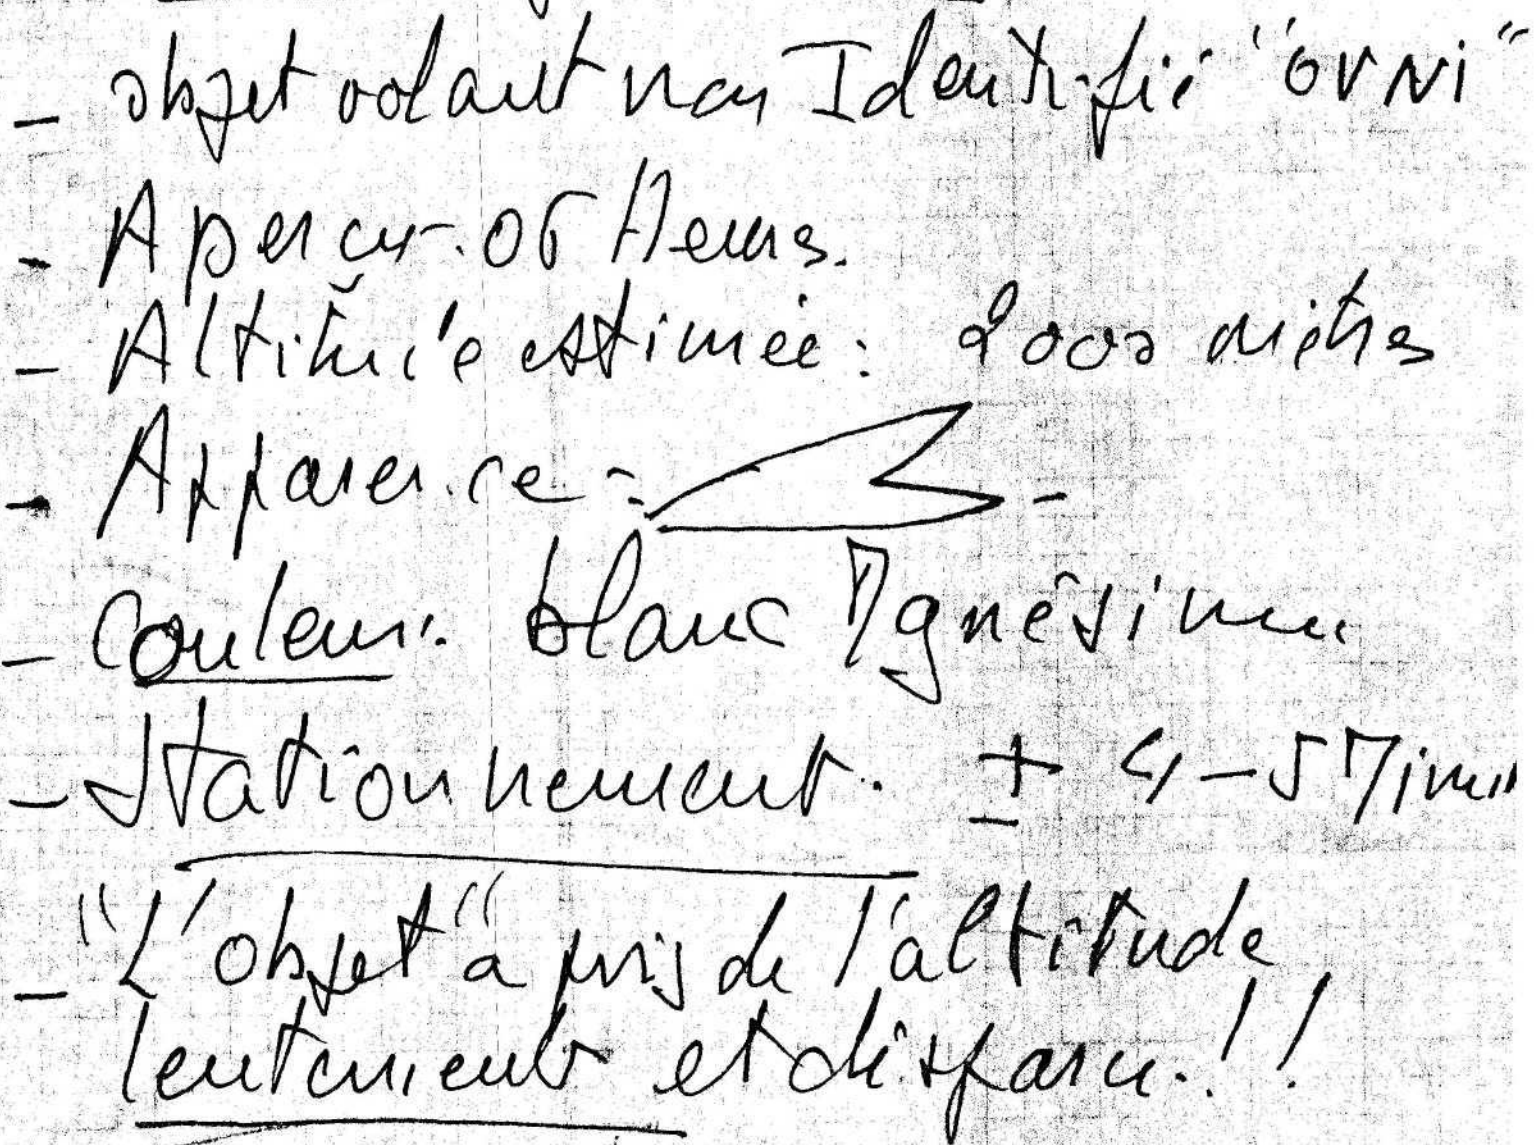 - objet volant non Identifié "OVNI"
- Aperçu. 06 Heures.
- Altitude estimée: 2000 mètres
- Apparence: -
- Couleur: blanc
- Stationnement. ± 4-5 Minu
- "L'objet" a pris de l'altitude
lentement et disparu.!!